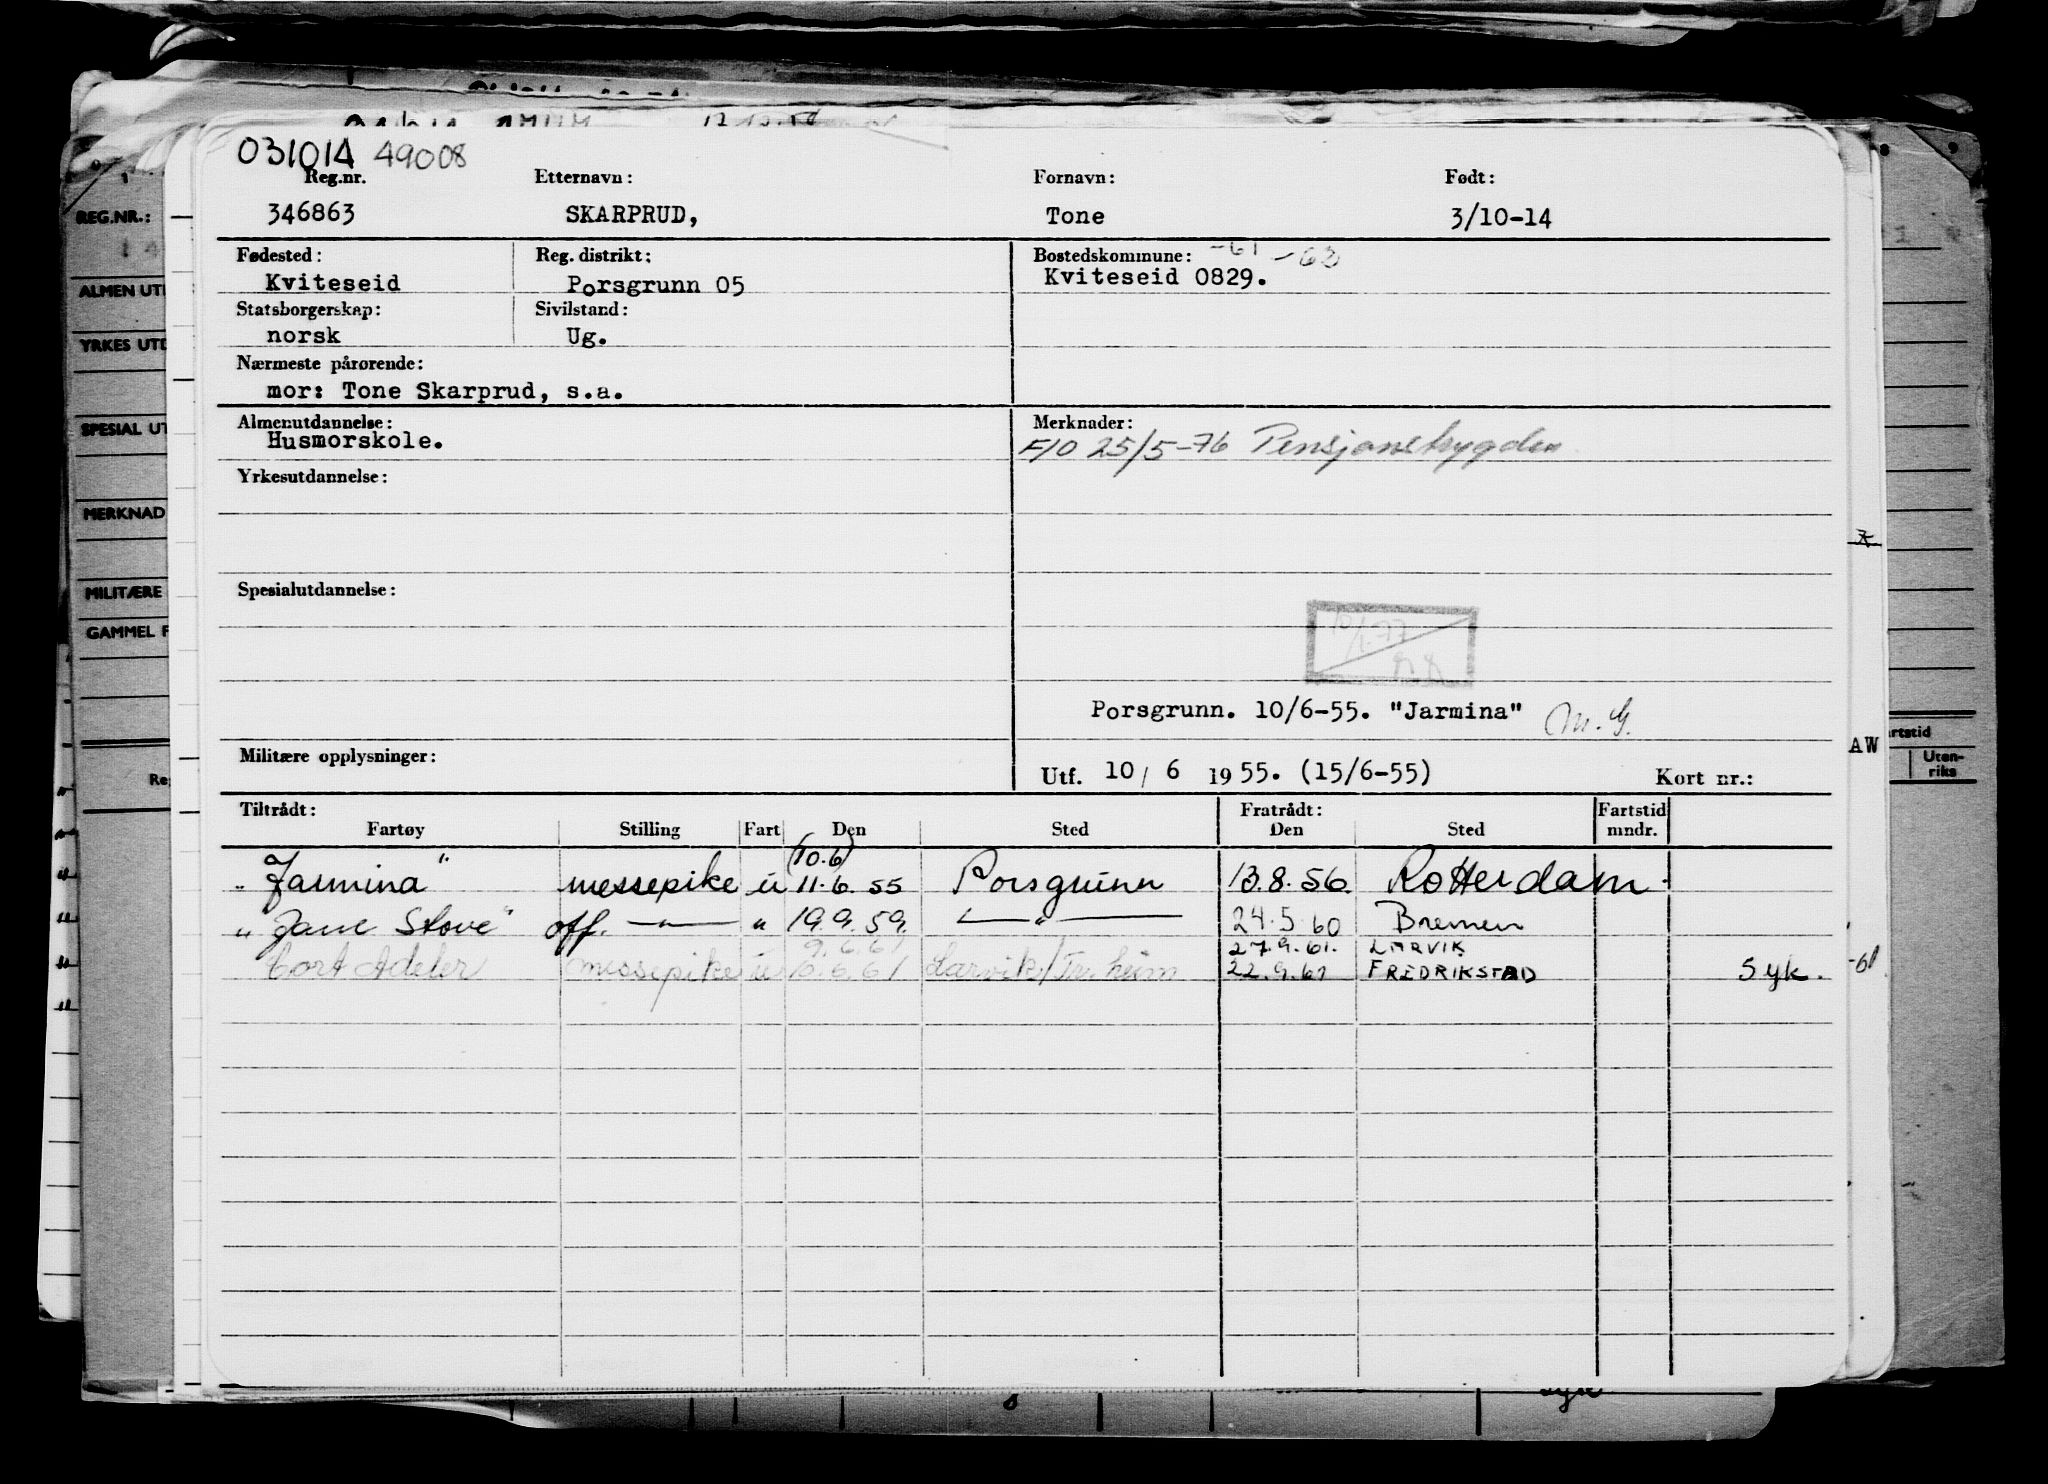 031014 49008
Reg.nr. Etternavn: Fornavn: Født:
346863 SKARPRUD, Tone 3/10-14
Fødested: Reg. distrikt: Bostedskommune: -61 -62
Kviteseid Porsgrunn 05 Kviteseid 0829.
Statsborgerskap: Sivilstand:
norsk Ug.
Nærmeste pårørende:
mor: Tone Skarprud, s.a.
Almenutdannelse: Merknader:
Husmorskole. F/O 25/5-76 Pensjonstrygden
Yrkesutdannelse:
Spesialutdannelse:
Porsgrunn. 10/6-55. "Jarmina" M.G.
Militære opplysninger: Utf. 10/ 6 1955. (15/6-55) Kort nr.:
Tiltrådt: Fratrådt: Fartstid
Fartøy Stilling Fart Den Sted Den Sted mndr.
(10.6)
"Jarmina" messepike u 11.6.55 Porsgrunn 13.8.56. Rotterdam.
"Jane Stove" off. —"— " 19.9.59. —"— 24.5.60 Bremen
9.6.61 27.9.61. LARVIK
Cort Adeler messepike u 6.6.61 Larvik/Tr.heim 22.9.61 FREDRIKSTAD Syk.
REG.NR.:
ALMEN UTD
YRKES UTD
SPESIAL UT
MERKNAD
MILITÆRE
GAMMEL F
AW
-61
rtstid
Uten-
riks